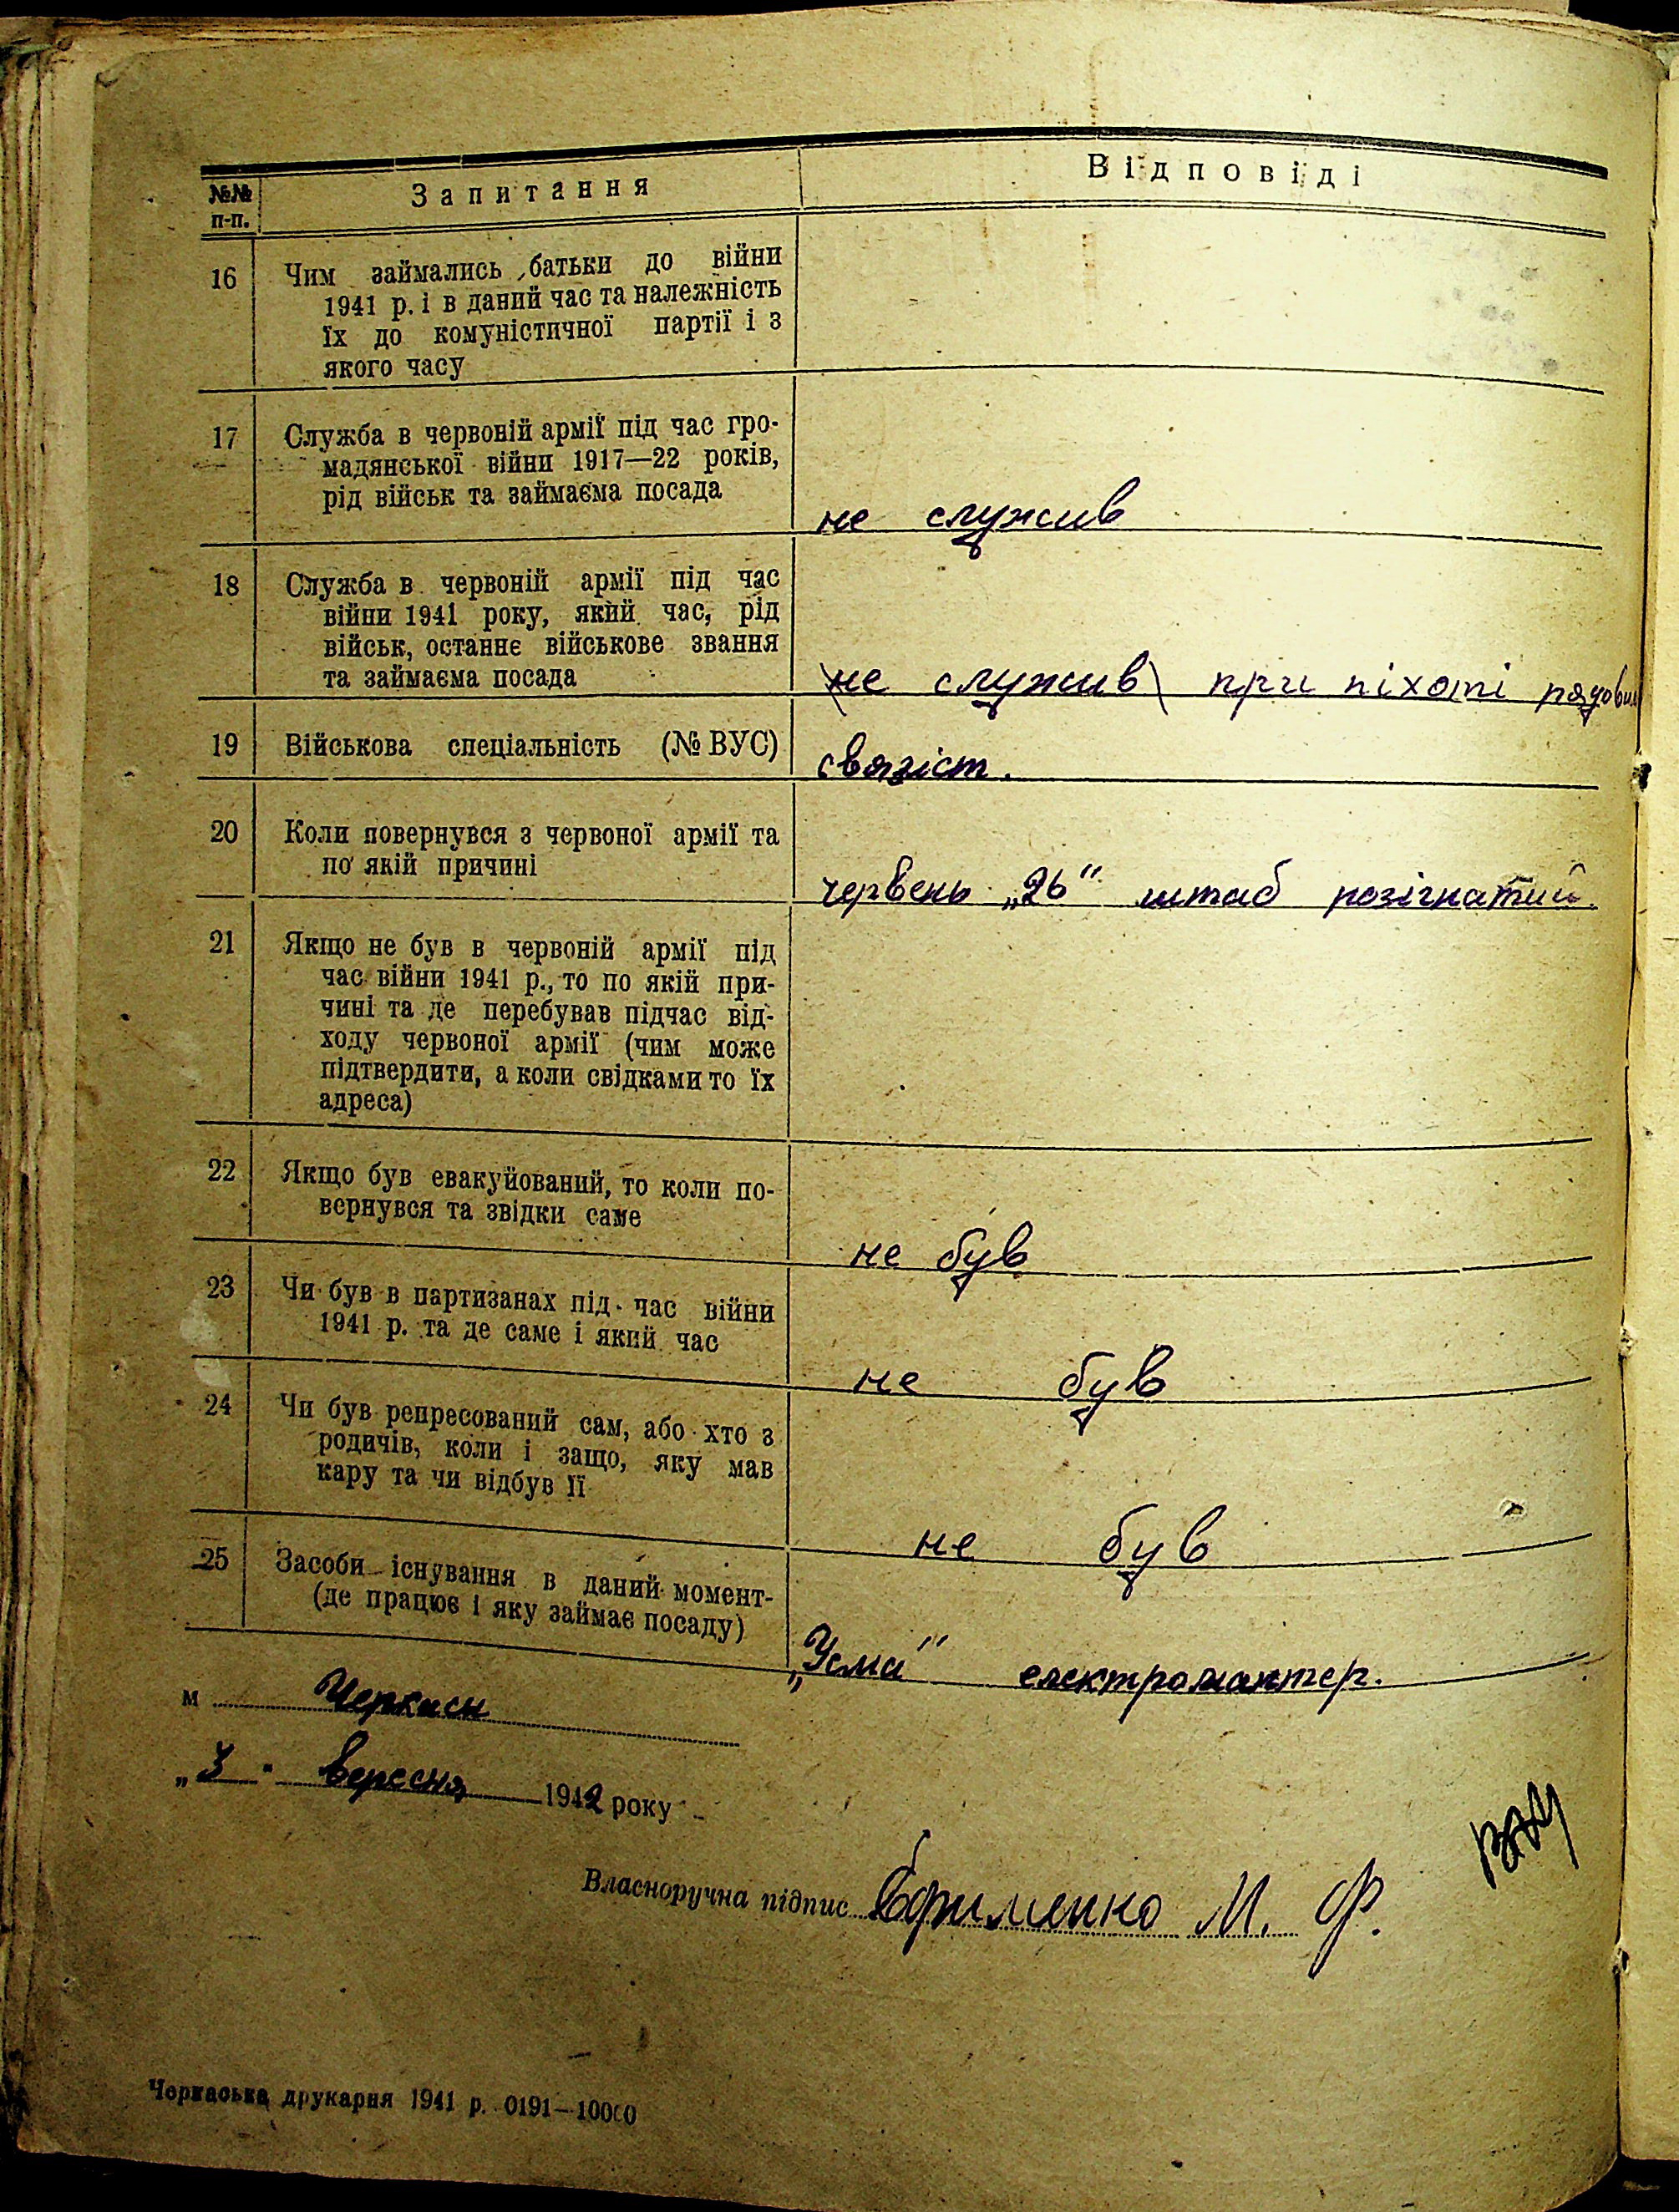 №№
п-п.
Запитання
Відповіді
16
Чим займались батьки до війни
1941 р. і в даний час та належність
їх до комуністичної партії і з
якого часу
17
Служба в червоній армії під час гро-
мадянської війни 1917—22 років,
рід військ та займаєма посада
не служив
18
Служба в червоній армії під час
війни 1941 року, який час, рід
військ, останнє військове звання
та займаєма посада
\не служив\ при піхоті рядовим
19
Військова спеціальність (№ ВУС)
связіст.
20
Коли повернувся з червоної армії та
по якій причині
червень „26" штаб розігнатий.
21
Якщо не був в червоній армії під
час війни 1941 р., то по якій при-
чині та де перебував підчас від-
ходу червоної армії (чим може
підтвердити, а коли свідками то їх
адреса)
22
Якщо був евакуйований, то коли по-
вернувся та звідки саме
не був
23
Чи був в партизанах під час війни
1941 р. та де саме і який час
не був
24
Чи був репресований сам, або хто з
родичів, коли і защо, яку мав
кару та чи відбув її
не був
25
Засоби існування в даний момент-
(де працює і яку займає посаду)
електромонтер.
м Черкаси
„3" вересня 1942 року
Власноручна підпис Єфименко М. Ф.
Черкаська друкарня 1941 р. 0191—10000